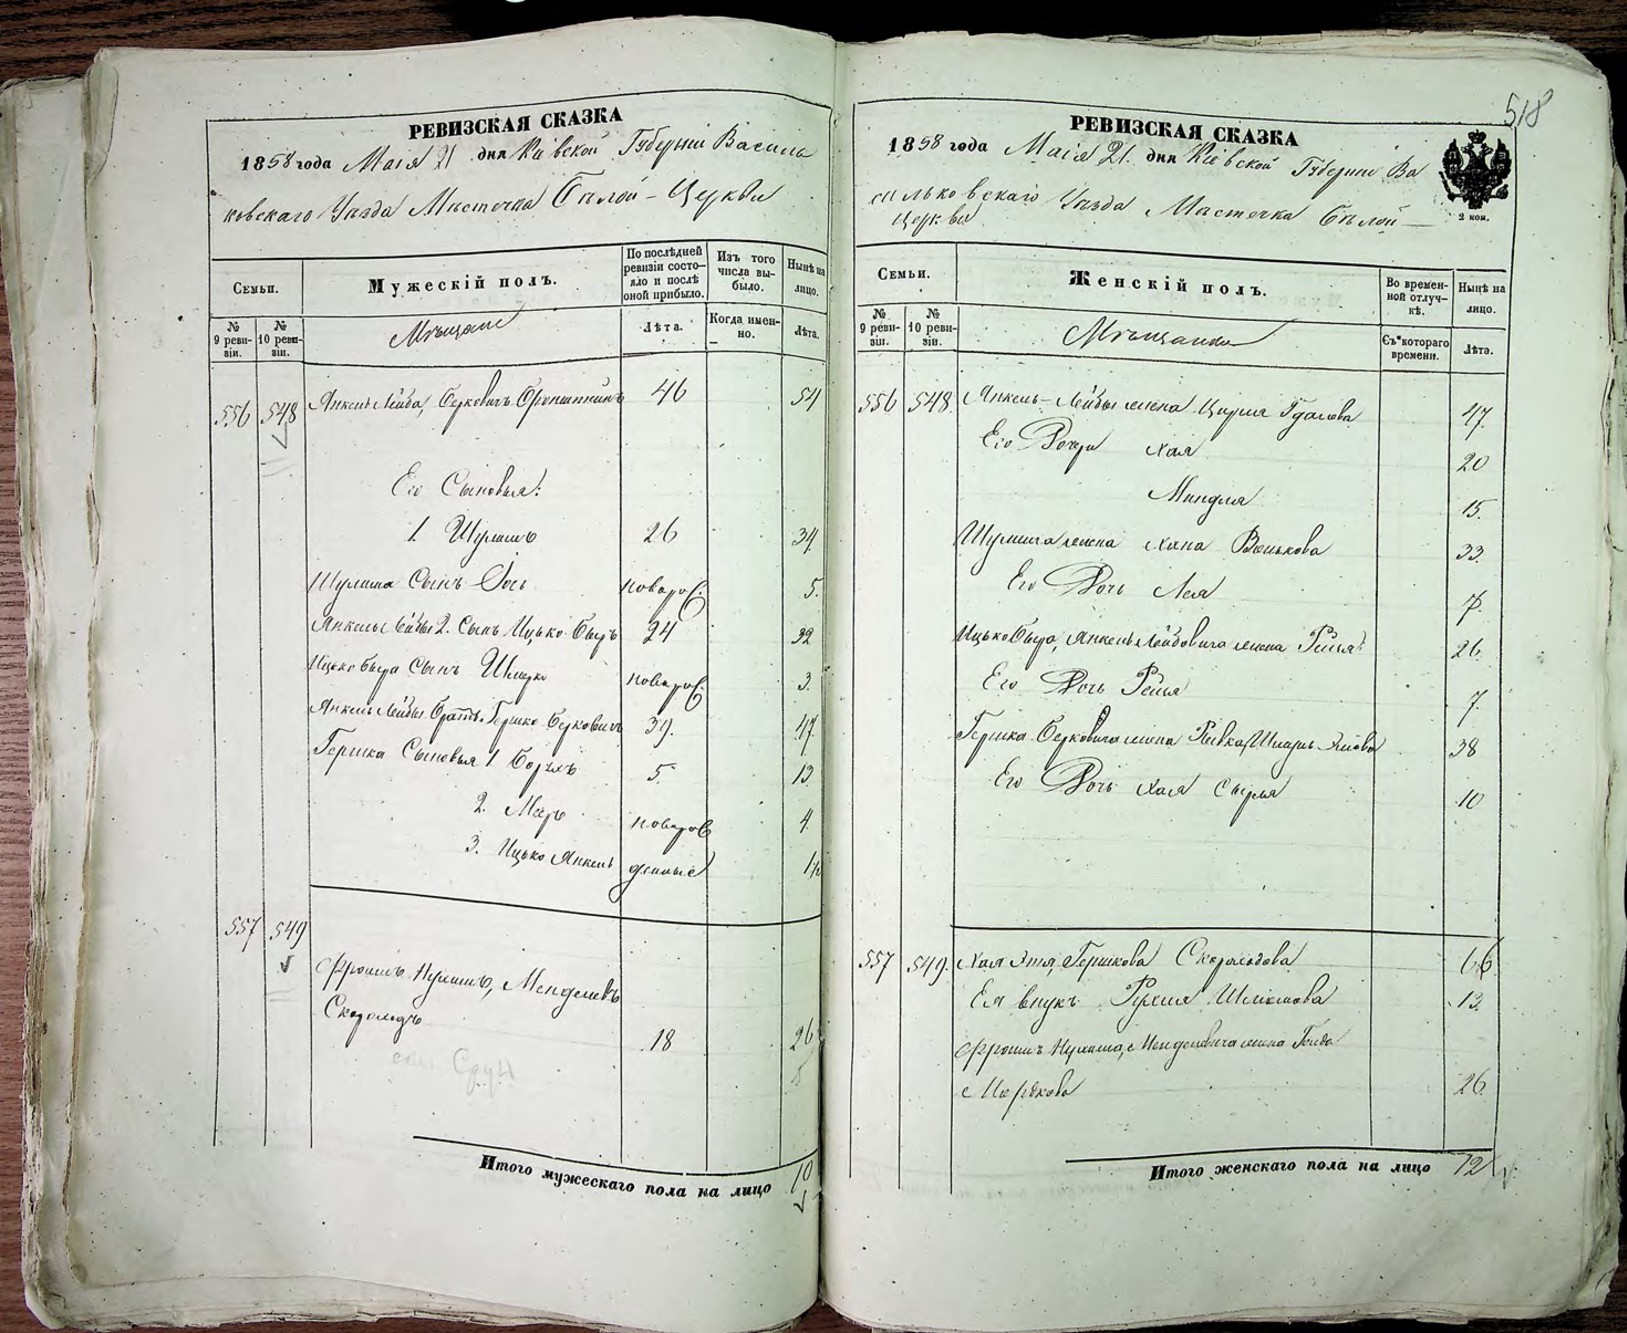 518
РЕВИЗСКАЯ СКАЗКА
1858 года Маія 21 дня Кіевской Губерніи Василь
ковскаго Уѣзда Мѣстечка Бѣлой-Церкви
Семьи.
Мужескій полъ.
По послѣдней ревизіи состо-яло и послѣ оной прибыло.
Изъ того числа вы-было.
Нынѣ на лицо.
№ 9 реви-зіи.
№ 10 реви-зіи.
Мѣщане
Лѣта.
Когда имен-но.
Лѣта.
556 548 Янкель Лейба, Берковичъ 46 54
Его Сыновья:
1. Шулимъ 26 34
Шулима Сынъ новорож. 5.
Янкель Лейбы 2. Сынъ Ицько-Беръ 24 32
Ицько Бера Сынъ Шмерко новорож. 3.
Янкель Лейбы Братъ Гершко Берковичъ 39. 47
Гершка Сыновья 1 Борухъ 5. 13
2. Меръ новорож 4.
3. Ицько Янкель денные 1½
557 549
Фроимъ Нухимъ, Менделевъ
Скороходъ
18 26
Итого мужескаго пола на лицо 10
РЕВИЗСКАЯ СКАЗКА
1858 года Маія 21. дня Кіевской Губерніи Ва
сильковскаго Уѣзда Мѣстечка Бѣлой-
Церкви
2 коп.
Семьи.
Женскій полъ.
Во времен-ной отлуч-кѣ.
Нынѣ на лицо.
№ 9 реви-зіи.
№ 10 реви-зіи.
Мѣщанки
Съ котораго времени.
Лѣта.
556 548. Янкель-Лейбы жена Цирля Гдалева 47.
Его Дочери Хая 20
Миндля 15.
Шулима жена Хана Волькова 33.
Его Дочь Лея 7.
Ицько Бера, Янкель Лейбовича жена Рейзя 26.
Его Дочь Рейзя 7.
Гершка Берковича жена Ривка 38
Его Дочь Хая Сырля 10
557 549. Хая Этя, Гершкова Скороходова 66
Ея внукъ Рухля Шлиомова 13.
Фроимъ Нухима, Менделевича жена Голда
Мордкова 26.
Итого женскаго пола на лицо 12